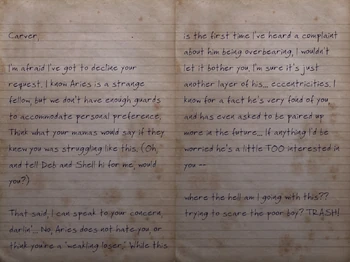 Carver,
I'm afraid I've got to decline your
request. I know Aries is a strange
fellow, but we don't have enough guards
to accommodate personal preference.
Think what your mamas would say if they
knew you was struggling like this. (Oh,
and tell Deb and Shell hi for me, would
you?)
That said, I can speak to your concern,
darlin'... No, Aries does not hate you, or
think you're a "weakling loser." While this
is the first time I've heard a complaint
about him being overbearing, I wouldn't
let it bother you. I'm sure it's just
another layer of his... eccentricities. I
know for a fact he's very fond of you,
and has even asked to be paired up
more in the future... If anything I'd be
worried he's a little TOO interested in
you --
where the hell am I going with this??
trying to scare the poor boy? TRASH!